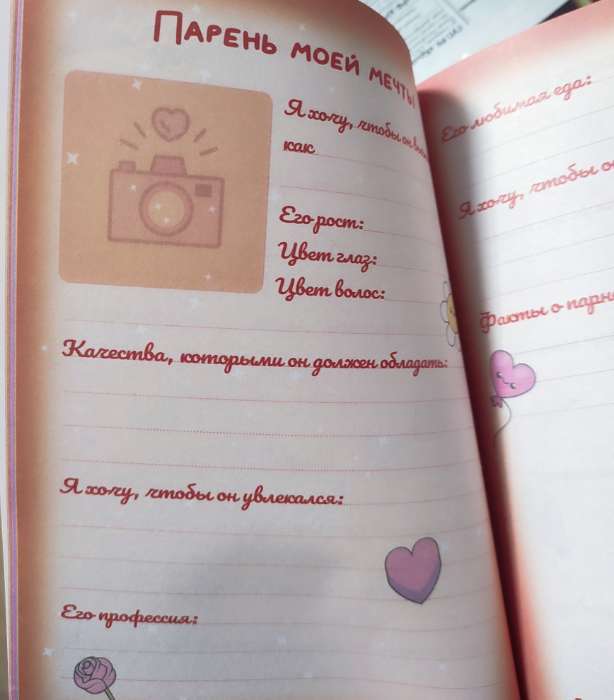 Парень моей мечты
Я хочу, чтобы он
как
Его рост:
Цвет глаз:
Цвет волос:
Качества, которыми он должен обладать:
Я хочу, чтобы он увлекался:
Его профессия:
Его любимая еда:
Я хочу, чтобы
Факты о